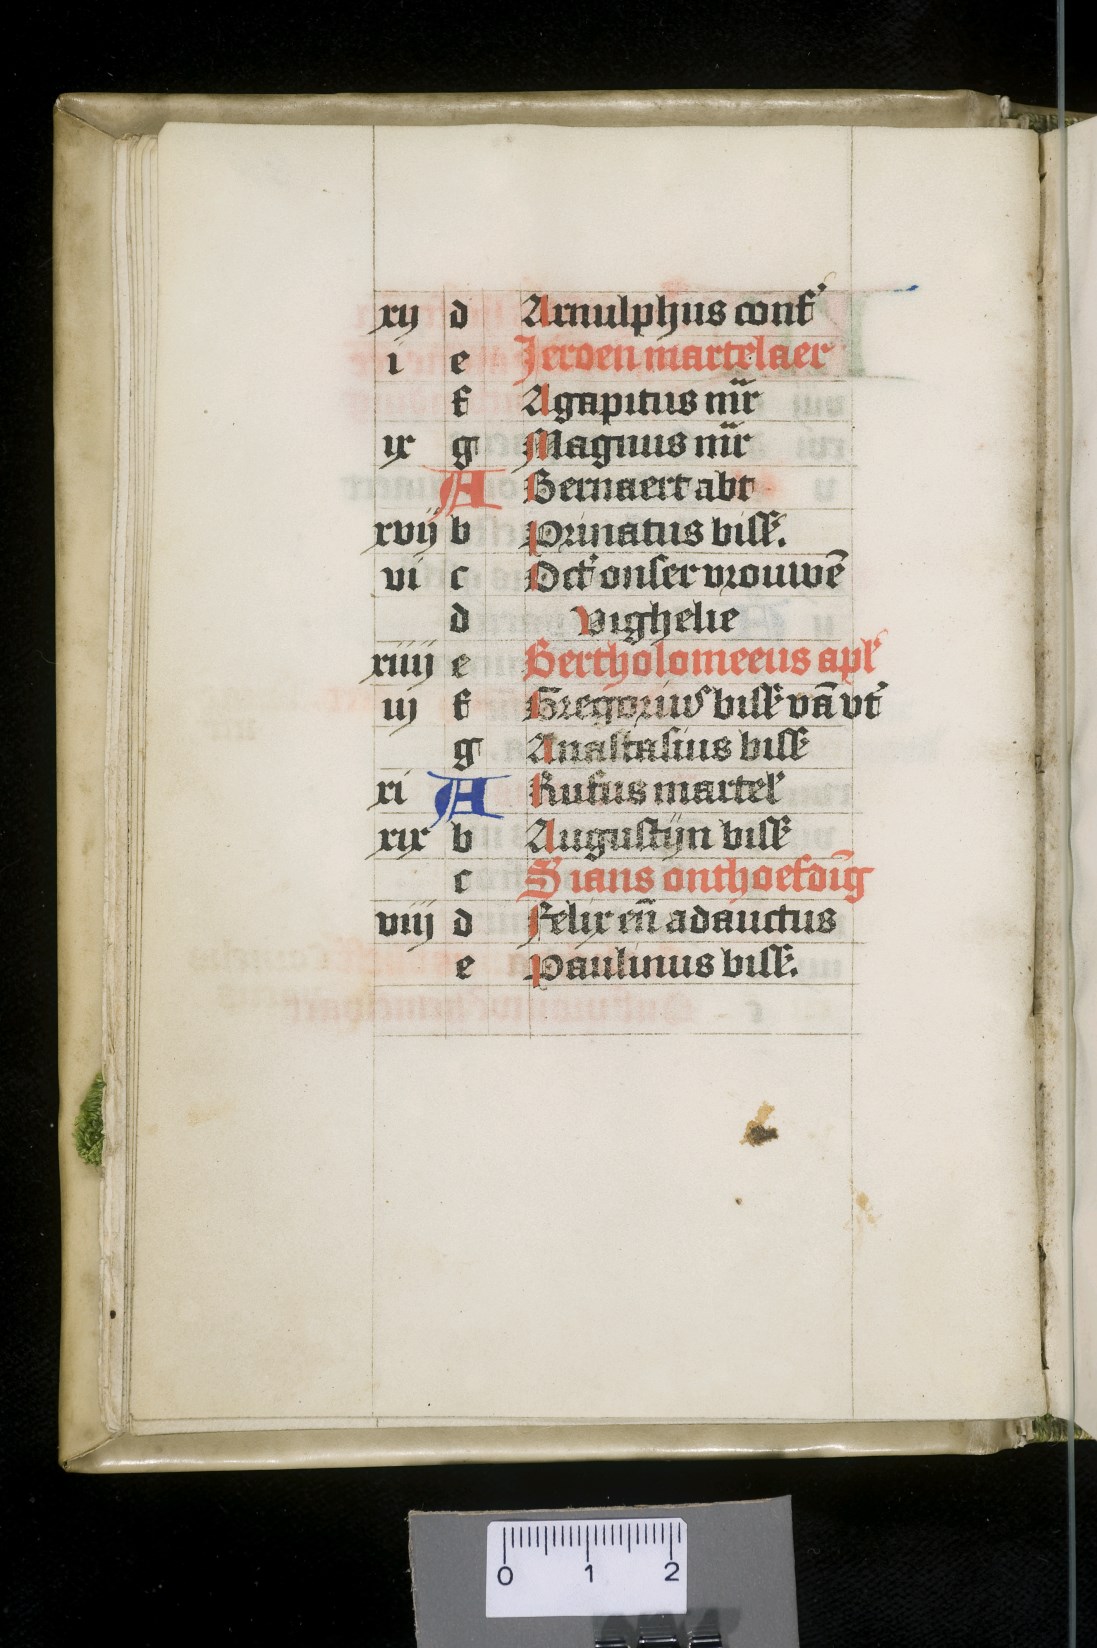 xij d Arnulphus conf'
i e Jeroen martelaer
f Agapitus mr̄
ix g Magnus mr̄
A Bernaert abt
xvij b Priuatus bissc̄.
vi c Oct' onser vrouwē
d vighelie
xiiij e Bertholomeeus apl'
iij f Gregorius bissc̄ vā vt'
g Anastasius bissc̄
xi A Rufus martel'
xix b Augustijn bissc̄
c S ians onthoefdīg
viij d Felix eñ adauctus
e Paulinus bissc̄.
0 1 2